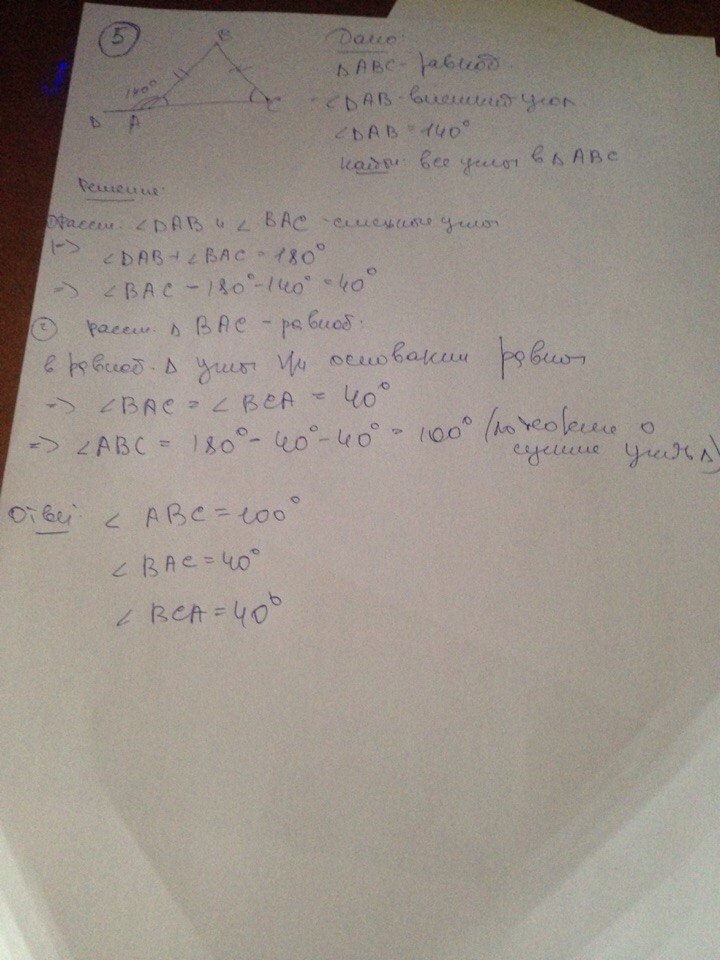 5
B
140°
C
D A
Дано:
△ABC - равноб.
∠DAB - внешний угол
∠DAB = 140°
Найти: все углы в △ABC
Решение:
1) Рассм. ∠DAB и ∠BAC - смежные углы
=> ∠DAB + ∠BAC = 180°
=> ∠BAC = 180° - 140° = 40°
2 Рассм. △ BAC - равноб.
в равноб. △ углы при основании равны
=> ∠BAC = ∠BCA = 40°
=> ∠ABC = 180° - 40° - 40° = 100° (
о
сумме углов △)
Ответ: ∠ ABC = 100°
∠ BAC = 40°
∠ BCA = 40°